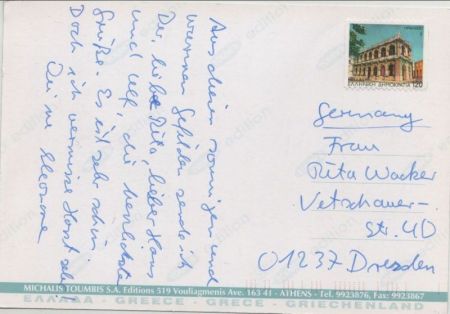 Aus den sonnigen und
warmen Gefilden sende ich
Dir, liebe Rita, lieber Hans
und Ulf, die herzlichsten
Grüße. Es ist sehr schön
Doch ich vermisse Horst sehr!
Deine Eleonore
ΕΛΛΗΝΙΚΗ ΔΗΜΟΚΡΑΤΙΑ 120
Germany
Frau
Rita Wacker
Vetschauer-
Str. 40
01237 Dresden
edition
MICHALIS TOUMBIS S.A. Editions 519 Vouliagmenis Ave. 163 41 - ATHENS - Tel. 9923876, Fax: 9923867
ΕΛΛΑΔΑ - GREECE - GRECE - GRIECHENLAND